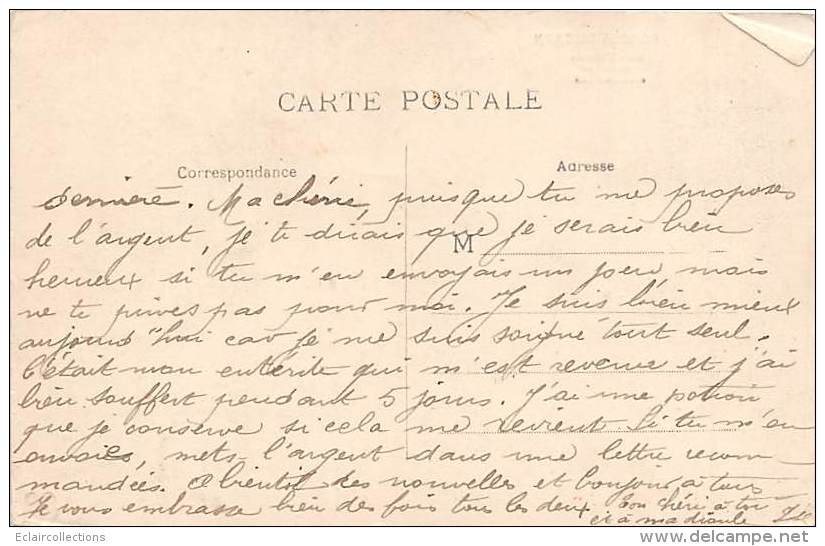 CARTE POSTALE
Correspondance
Adresse
M
dernière. Ma chérie, puisque tu me proposes
de l'argent, je te dirais que je serais bien
heureux si tu m'en envoyais un peu, mais
ne te prives pas pour moi. Je suis bien mieux
aujourd"hui car je me suis soigné tout seul.
C'était mon entérite qui m'est revenue et j'ai
bien souffert pendant 5 jours. J'ai une potion
que je conserve si cela me revient. Si tu m'en
envoies, mets l'argent dans une lettre recom
mandées. A bientôt des nouvelles et bonjour à tous
Je vous embrasse bien des fois tous les deux Ton chéri à toi
et à ma
Eclaircollections
delcampe.net